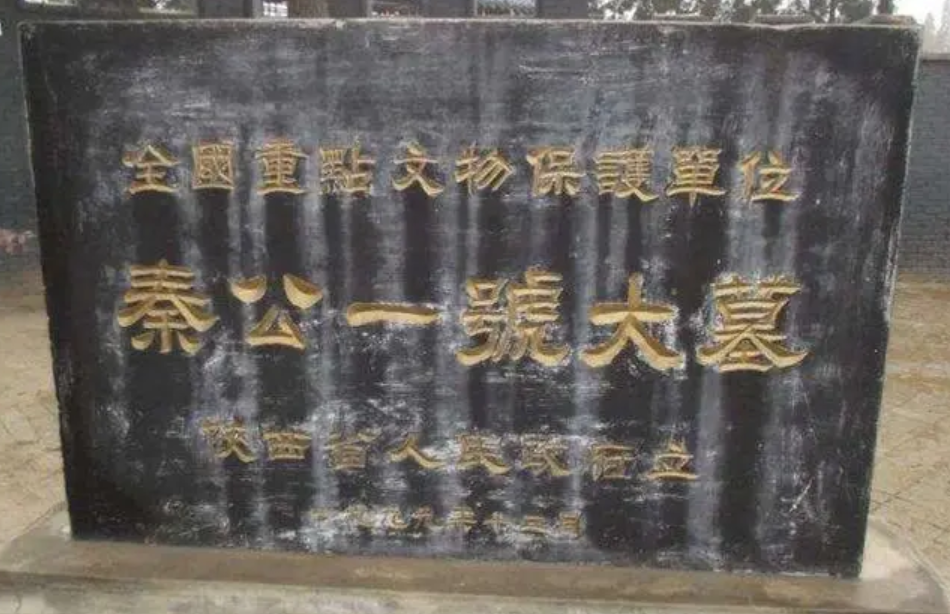 全國重點文物保護單位
秦公一號大墓
陝西省人民政府立
九年十二月